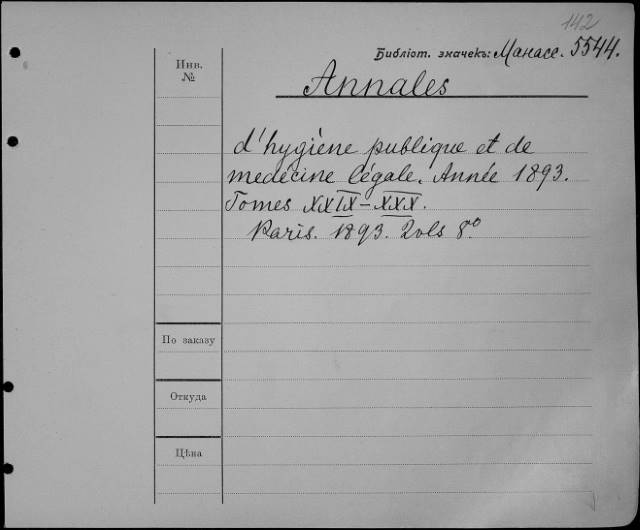 142
Библіот. значекъ: Манасе. 5544.
Инв.
№
Annales
d'hygiène publique et de
medécine légale. Année 1893.
Tomes XXIX–XXX.
Paris. 1893. 2 vols 8º
По заказу
Откуда
Цѣна